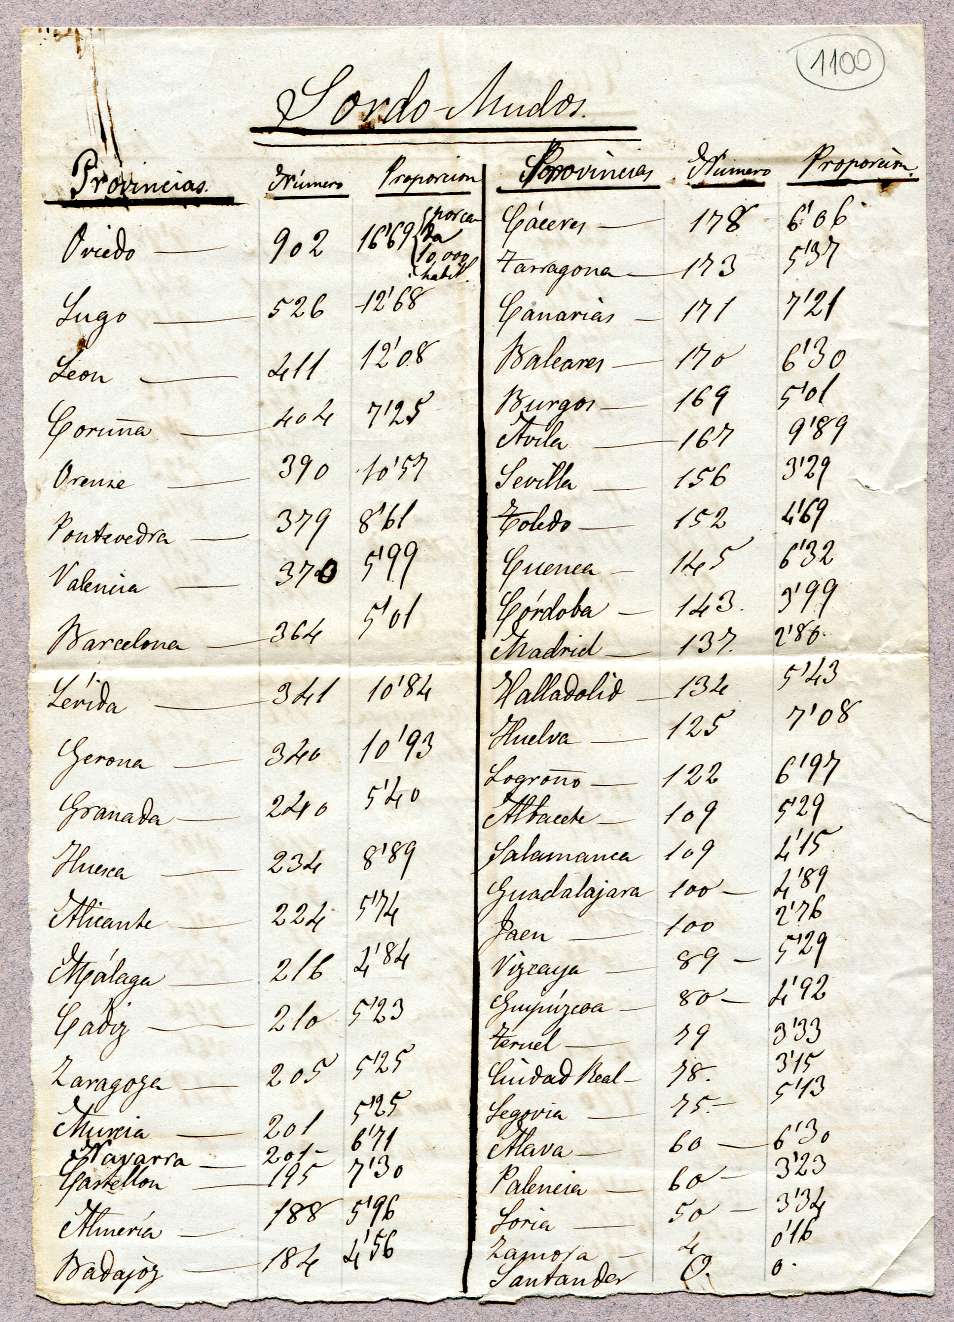 1100
Sordo-Mudos.
Provincias. Número Proporcion
Oviedo — 902 16'69 { por ca
da
10,000
habit.
Lugo — 526 12'68
Leon — 411 12'08
Coruña — 404 7'25
Orense — 390 10'57
Pontevedra — 379 8'61
Valencia — 370 5'99
Barcelona — 364 5'01
Lérida — 341 10'84
Gerona — 340 10'93
Granada — 240 5'40
Huesca — 234 8'89
Alicante — 224 5'74
Málaga — 216 4'84
Cadiz — 210 5'23
Zaragoza — 205 5'25
Murcia — 201 5'25
Navarra — 201 - 6'71
Castellon — 195 7'30
Almería — 188 5'96
Badajoz — 184 4'56
Provincias Número Proporcion.
Cáceres — 178 6'06
Tarragona — 173 5'37
Canarias — 171 7'21
Baleares — 170 6'30
Burgos — 169 5'01
Avila — 167 9'89
Sevilla — 156 3'29
Toledo — 152 4'69
Cuenca — 145 6'32
Córdoba — 143. 3'99
Madrid — 137. 2'80.
Valladolid — 134 5'43
Huelva — 125 7'08
Logroño — 122 6'97
Albacete — 109 5'29
Salamanca 109 4'15
Guadalajara 100 — 4'89
Jaen — 100 2'76
Vizcaya — 89 — 5'29
Guipúzcoa — 80 — 4'92
Teruel — 79 3'33
Ciudad Real — 78. 3'15
Segovia — 75. — 5'13
Alava — 60 — 6'30
Palencia — 60 — 3'23
Soria — 50 — 3'34
Zamora — 4 0'16
Santander 0. 0.